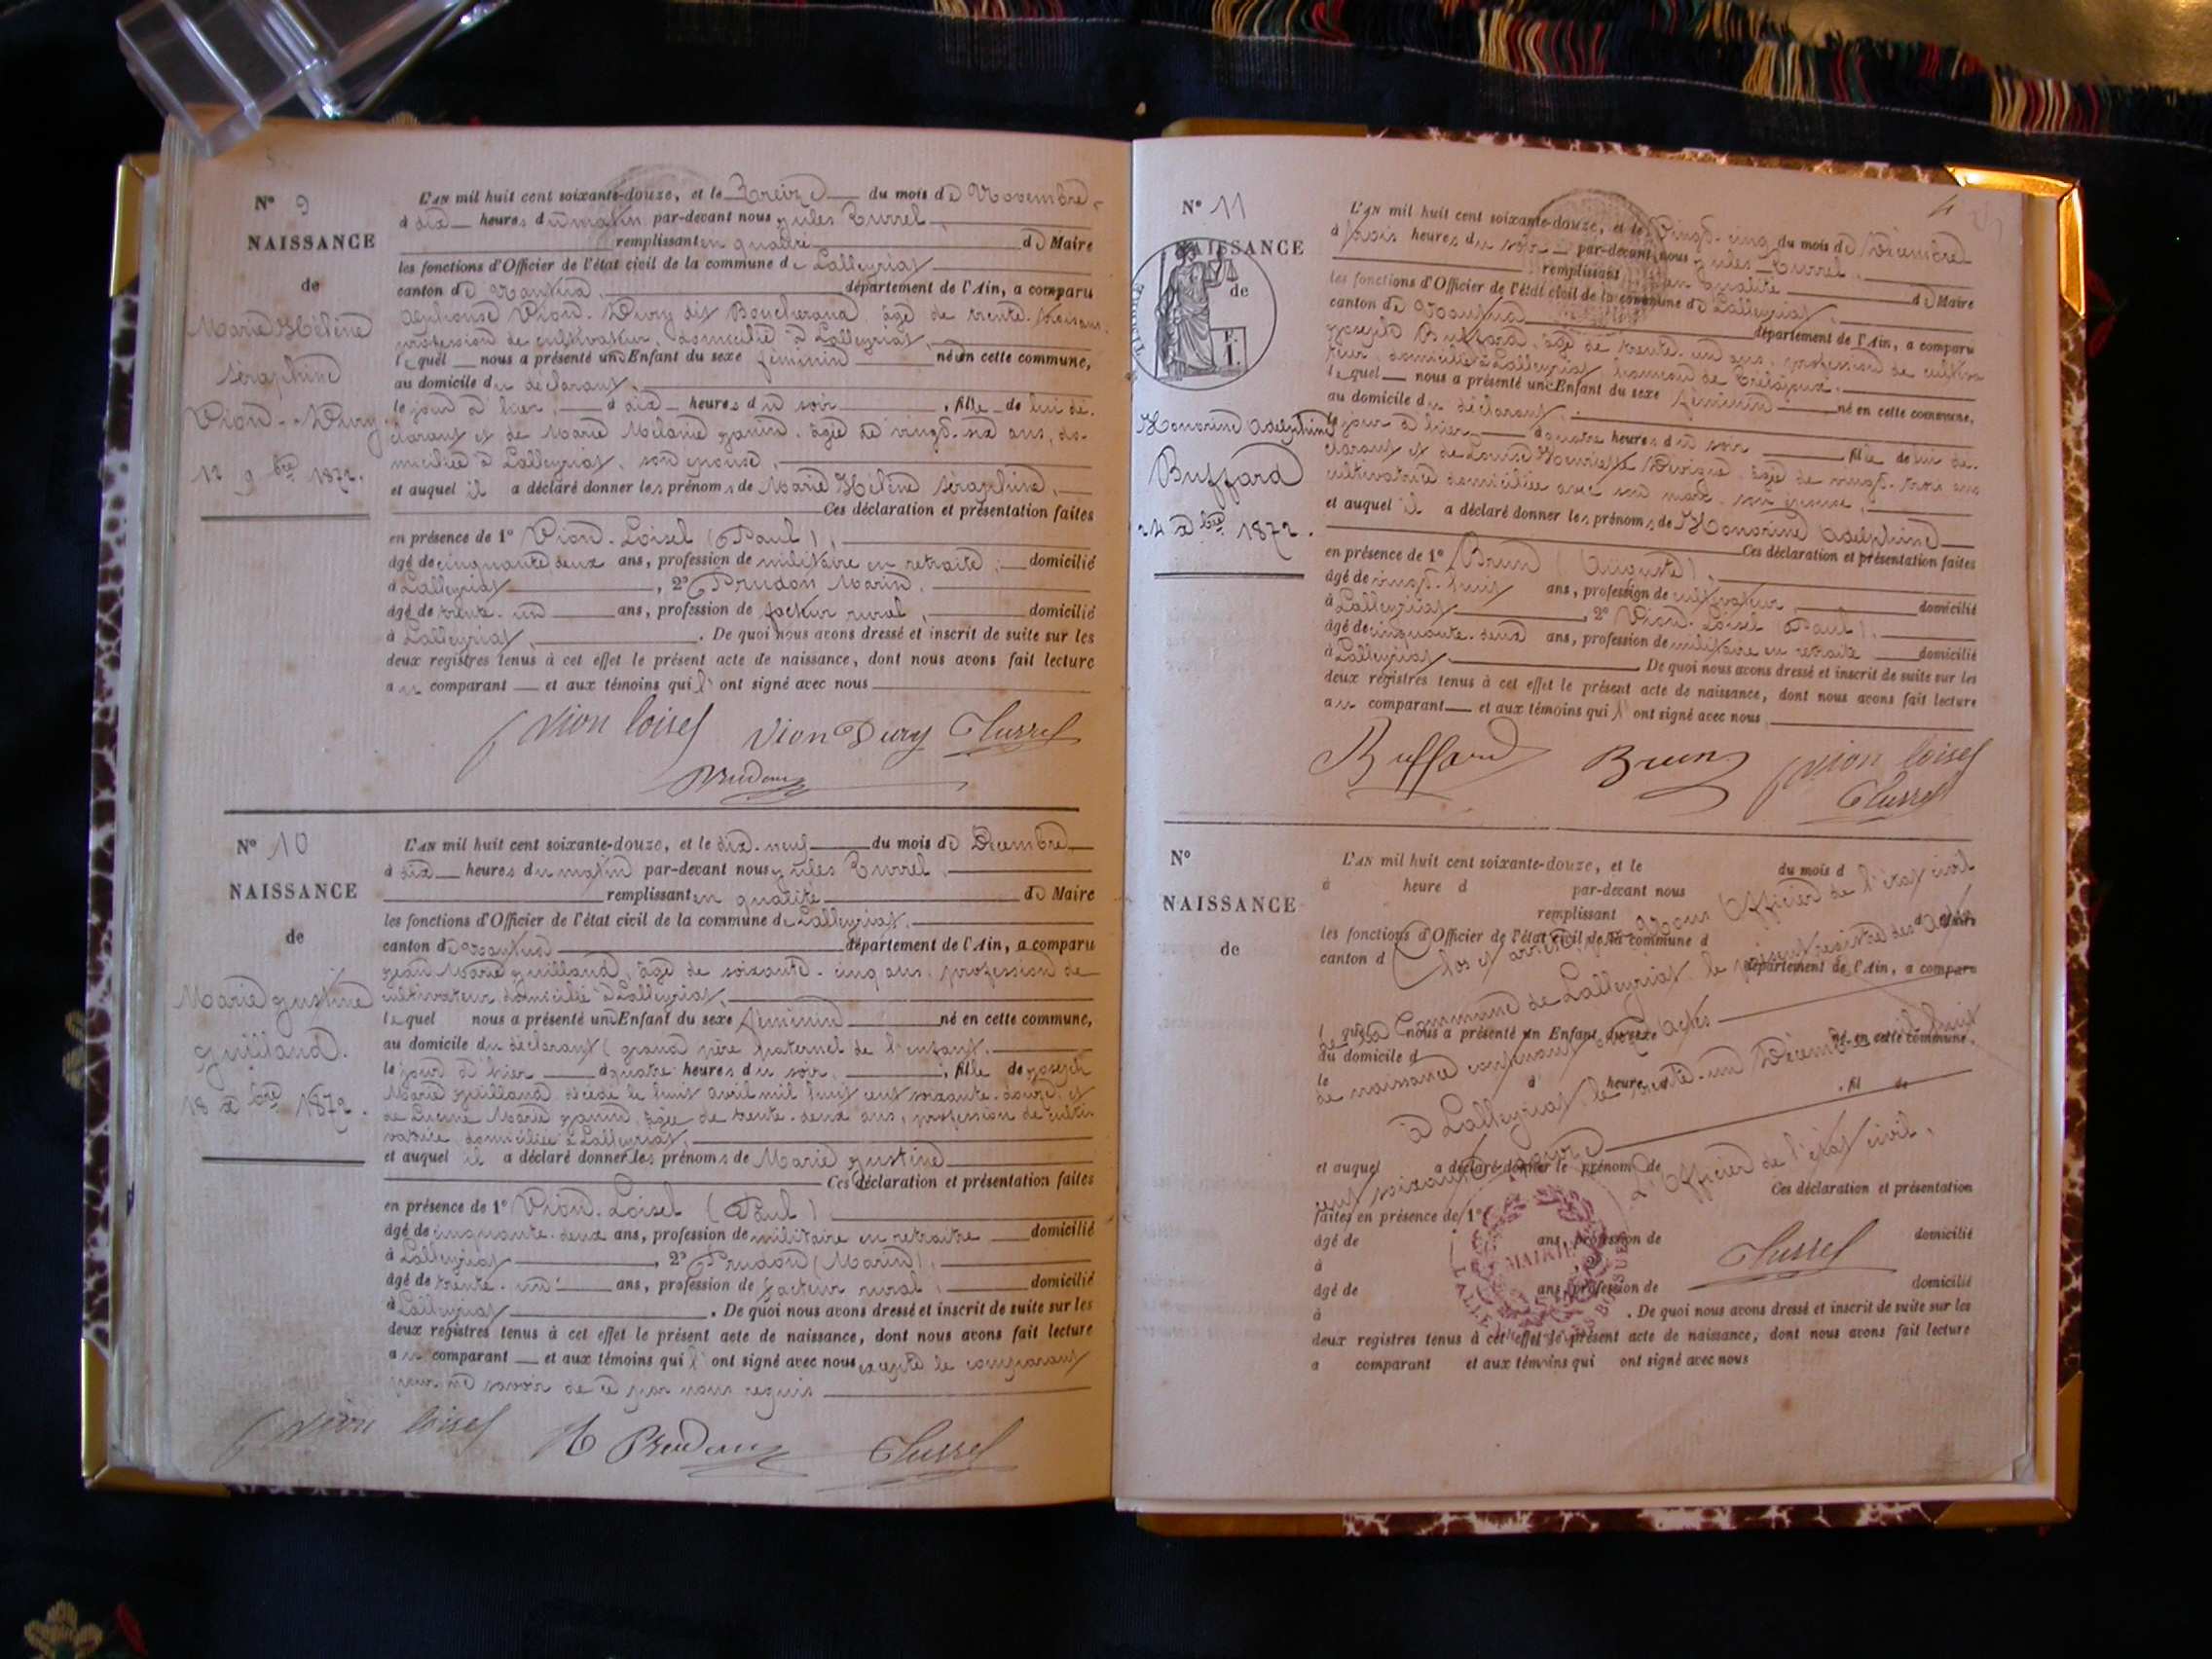 N° 9
NAISSANCE
de
Marie Hélène
Séraphine
Vion-Dury
12 9bre 1872.
L'AN mil huit cent soixante-douze, et le Treize du mois de Novembre
à dix heures du matin par-devant nous Jules Turrel
remplissant en qualité de Maire
les fonctions d'Officier de l'état civil de la commune de Lalleyriat
canton de Nantua département de l'Ain, a comparu
Alphonse Vion-Dury dit Boucherand, âgé de trente-trois ans,
profession de cultivateur, domicilié à Lalleyriat,
lequel nous a présenté un Enfant du sexe féminin né en cette commune,
au domicile du déclarant,
le jour d'hier, à dix heures du soir, fille de lui dé-
clarant et de Marie Mélanie Janin, âgée de vingt-six ans, do-
miciliée à Lalleyriat, son épouse,
et auquel il a déclaré donner les prénoms de Marie Hélène Séraphine,
Ces déclaration et présentation faites
en présence de 1° Vion-Loisel (Paul),
âgé de cinquante deux ans, profession de militaire en retraite, domicilié
à Lalleyriat, 2° Prudon Marin,
âgé de trente-un ans, profession de facteur rural, domicilié
à Lalleyriat, . De quoi nous avons dressé et inscrit de suite sur les
deux registres tenus à cet effet le présent acte de naissance, dont nous avons fait lecture
au comparant et aux témoins qui l'ont signé avec nous
P Vion Loisel Vion Dury JTurrel
Prudon
N° 10
NAISSANCE
de
Marie Justine
Guilland.
18 Xbre 1872.
L'AN mil huit cent soixante-douze, et le dix-neuf du mois de Décembre
à dix heures du matin par-devant nous Jules Turrel,
remplissant en qualité de Maire
les fonctions d'Officier de l'état civil de la commune de Lalleyriat,
canton de Nantua département de l'Ain, a comparu
Jean Marie Guilland, âgé de soixante-cinq ans, profession de
cultivateur, domicilié à Lalleyriat,
lequel nous a présenté un Enfant du sexe féminin né en cette commune,
au domicile du déclarant (grand père paternel de l'enfant.
le jour d'hier à quatre heures du soir, , fille de Joseph
Marie Guilland, décédé le huit avril mil huit cent soixante-douze, et
de Lucine Marie Janin, âgée de trente-deux ans, profession de culti-
vatrice, domiciliée à Lalleyriat,
et auquel il a déclaré donner les prénoms de Marie Justine
Ces déclaration et présentation faites
en présence de 1° Vion-Loisel (Paul),
âgé de cinquante-deux ans, profession de militaire en retraite domicilié
à Lalleyriat, 2° Prudon (Marin),
âgé de trente-un ans, profession de facteur rural, domicilié
à Lalleyriat . De quoi nous avons dressé et inscrit de suite sur les
deux registres tenus à cet effet le présent acte de naissance, dont nous avons fait lecture
au comparant et aux témoins qui l'ont signé avec nous excepté le comparant
pour ne savoir de ce par nous requis
P Vion Loisel M Prudon JTurrel
4
N° 11
NAISSANCE
de
TIMBRE
F.
1.
Honorine Adelphine
Buffard
24 Xbre 1872.
L'AN mil huit cent soixante-douze, et le Vingt-cinq du mois de Décembre
à trois heures du soir par-devant nous Jules Turrel,
remplissant en qualité de Maire
les fonctions d'Officier de l'état civil de la commune de Lalleyriat,
canton de Nantua département de l'Ain, a comparu
Joseph Buffard, âgé de trente-un ans, profession de cultiva-
teur, domicilié à Lalleyriat, hameau de
lequel nous a présenté un Enfant du sexe féminin né en cette commune,
au domicile du déclarant,
le jour d'hier à quatre heures du soir fille de lui dé-
clarant et de Louise Henriette, âgée de vingt-trois ans
cultivatrice domiciliée avec son mari, son épouse,
et auquel il a déclaré donner les prénoms de Honorine Adelphine
Ces déclaration et présentation faites
en présence de 1° Brun (Auguste),
âgé de vingt-huit ans, profession de cultivateur, domicilié
à Lalleyriat, 2° Vion-Loisel (Paul),
âgé de cinquante-deux ans, profession de militaire en retraite domicilié
à Lalleyriat, . De quoi nous avons dressé et inscrit de suite sur les
deux registres tenus à cet effet le présent acte de naissance, dont nous avons fait lecture
au comparant et aux témoins qui l'ont signé avec nous,
Buffard Brun P Vion Loisel
JTurrel
N°
NAISSANCE
de
L'AN mil huit cent soixante-douze, et le du mois d
à heure d par-devant nous
remplissant d Maire
les fonctions d'Officier de l'état civil de la commune d
canton d département de l'Ain, a comparu
l quel nous a présenté un Enfant du sexe né en cette commune,
au domicile d
le à heure d , fil de
et auquel a déclaré donner le prénom de
Ces déclaration et présentation
faites en présence de 1°
âgé de ans, profession de domicilié
à
âgé de ans, profession de domicilié
à . De quoi nous avons dressé et inscrit de suite sur les
deux registres tenus à cet effet le présent acte de naissance, dont nous avons fait lecture
a comparant et aux témoins qui ont signé avec nous
Clos et arrêté par Nous Officier de l'état civil
de la Commune de Lalleyriat, le présent registre des actes
de naissance contenant onze actes
à Lalleyriat, le trente-un Décembre mil huit
cent soixante-douze
L'Officier de l'état civil,
JTurrel
MAIRIE